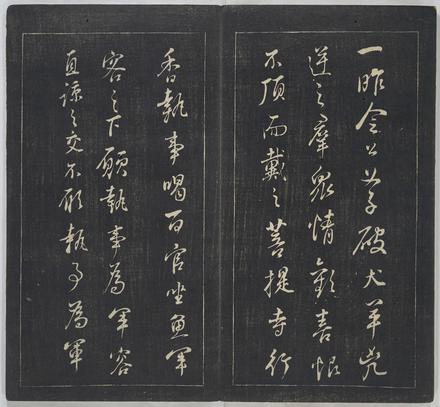 一昨令公父子破犬羊兇
逆之羣衆情歡喜恨
不頂而戴之菩提寺行
香執事喝百官坐魚軍
容之下願執事為軍容
直諒之友不願執事為軍